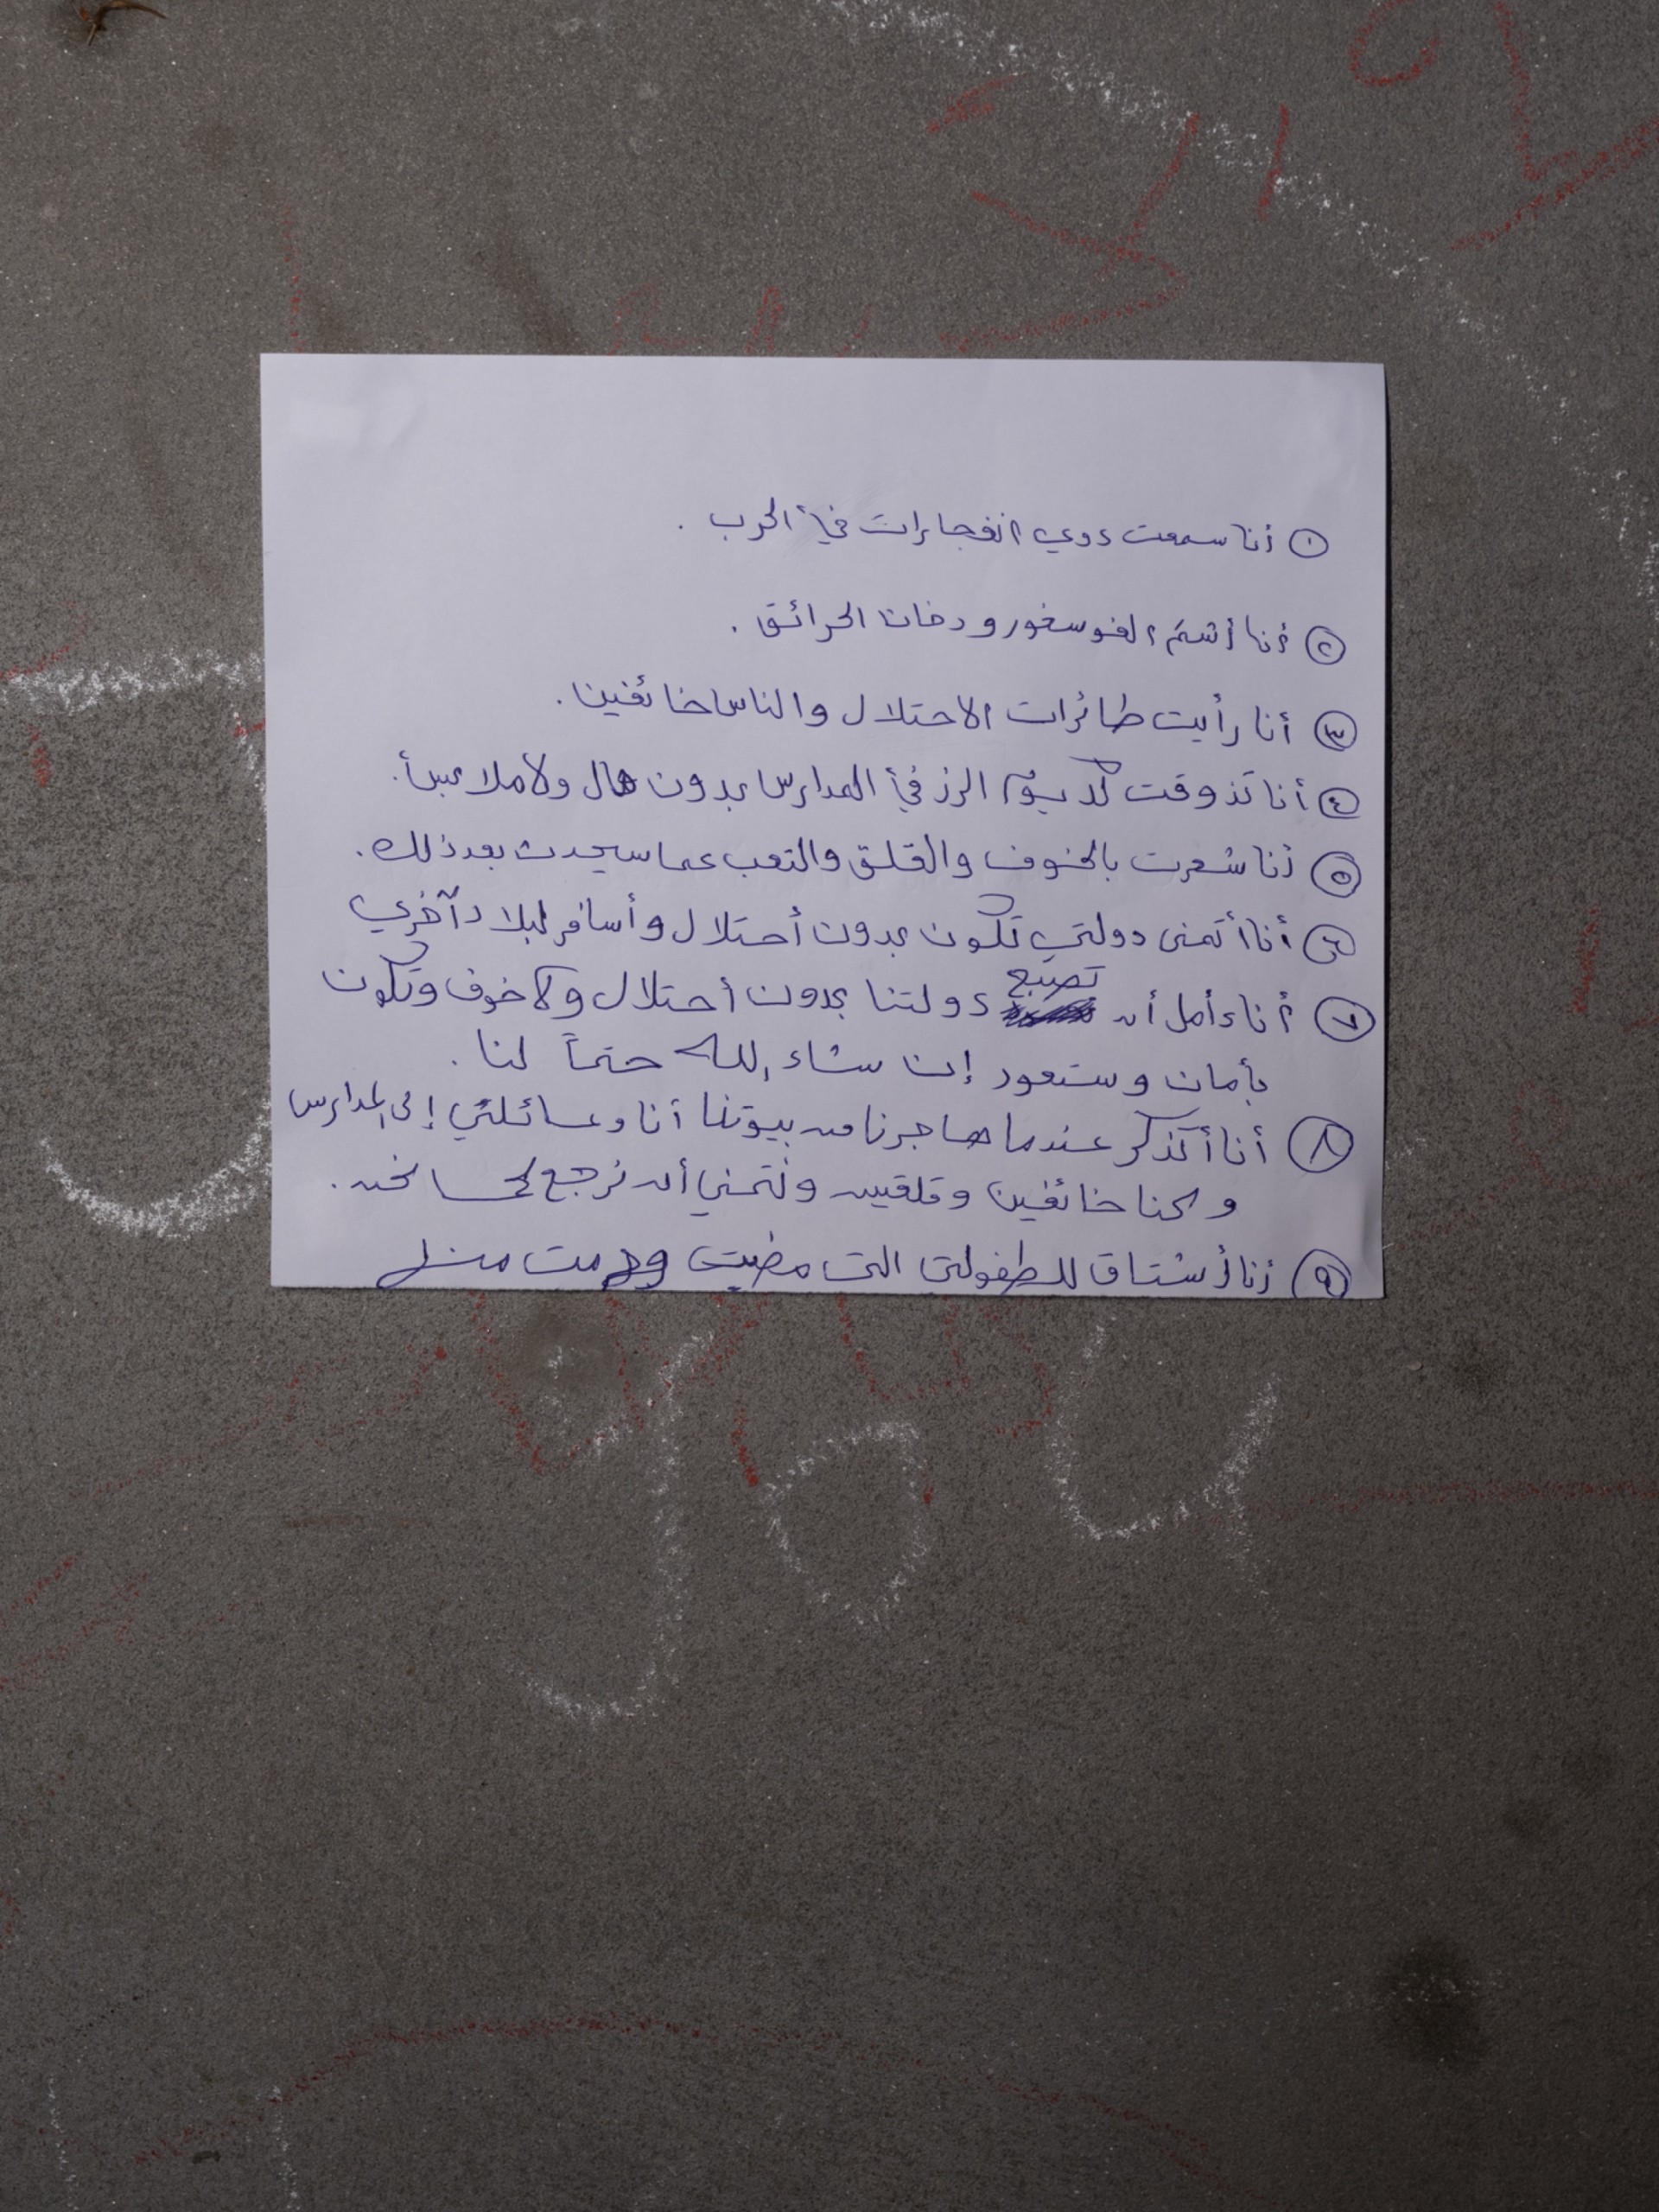 ١ أنا سمعت دوي انفجارات في الحرب .
٢ أنا أشتم الفوسفور ودخان الحرائق .
٣ أنا رأيت طائرات الاحتلال والناس خائفين .
٤ أنا تذوقت كل يوم الرز في المدارس بدون مال ولا ملابس .
٥ أنا شعرت بالخوف والقلق والتعب عما سيحدث بعد ذلك .
٦ أنا أتمنى دولتي تكون بدون أحتلال وأسافر لبلاد آخري
٧ أنا أمل أن تصبح دولتنا بدون أحتلال ولا خوف وتكون
بأمان وستعود إن شاء الله حتماً لنا .
٨ أنا أتذكر عندما هاجرنا من بيوتنا أنا وعائلتي إلى المدارس
وكنا خائفين وقلقين ونتمني أن نرجع كما نحن .
٩ أنا أشتاق للطفولتى التى مضيت